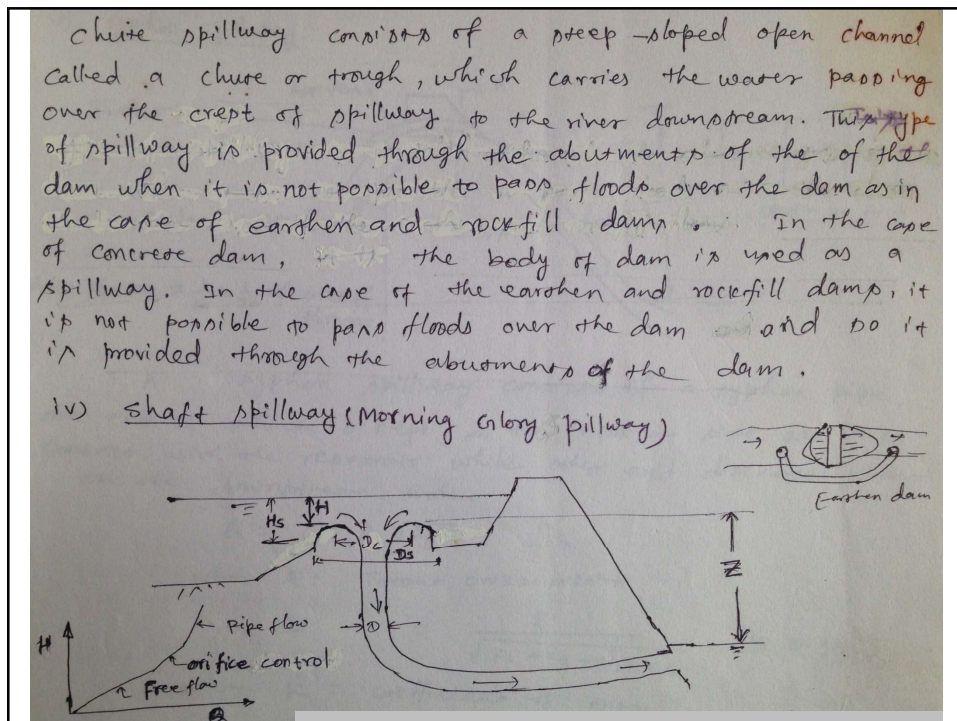 Chute spillway consists of a steep-sloped open channel
called a chute or trough, which carries the water passing
over the crest of spillway to the river downstream. This type
of spillway is provided through the abutments of the of the
dam when it is not possible to pass floods over the dam as in
the case of earthen and rockfill dams. In the case
of concrete dam, the body of dam is used as a
spillway. In the case of the earthen and rockfill dams, it
is not possible to pass floods over the dam and so it
is provided through the abutments of the dam.
iv) shaft spillway (Morning Glory pillway)
Earthen dam
Hs H
Dc
Ds
Z
D
pipe flow
orifice control
Free flow
H
Q